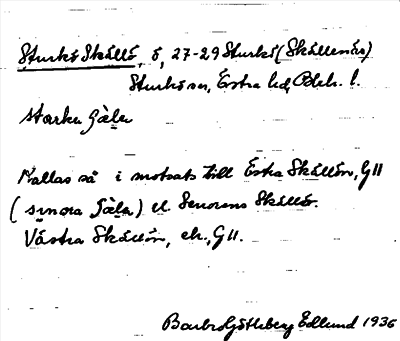 Sturkö Skällö, ö, 27-29 Sturkö (Skällenäs)
Sturkö sn, Östra hd, Blek. l.
Kallas så i motsats till Östra Skällön, G11
(                ) el. Senorens Skällö.
Västra Skällön, ek., G11.
Barbro Götheberg Edlund 1936